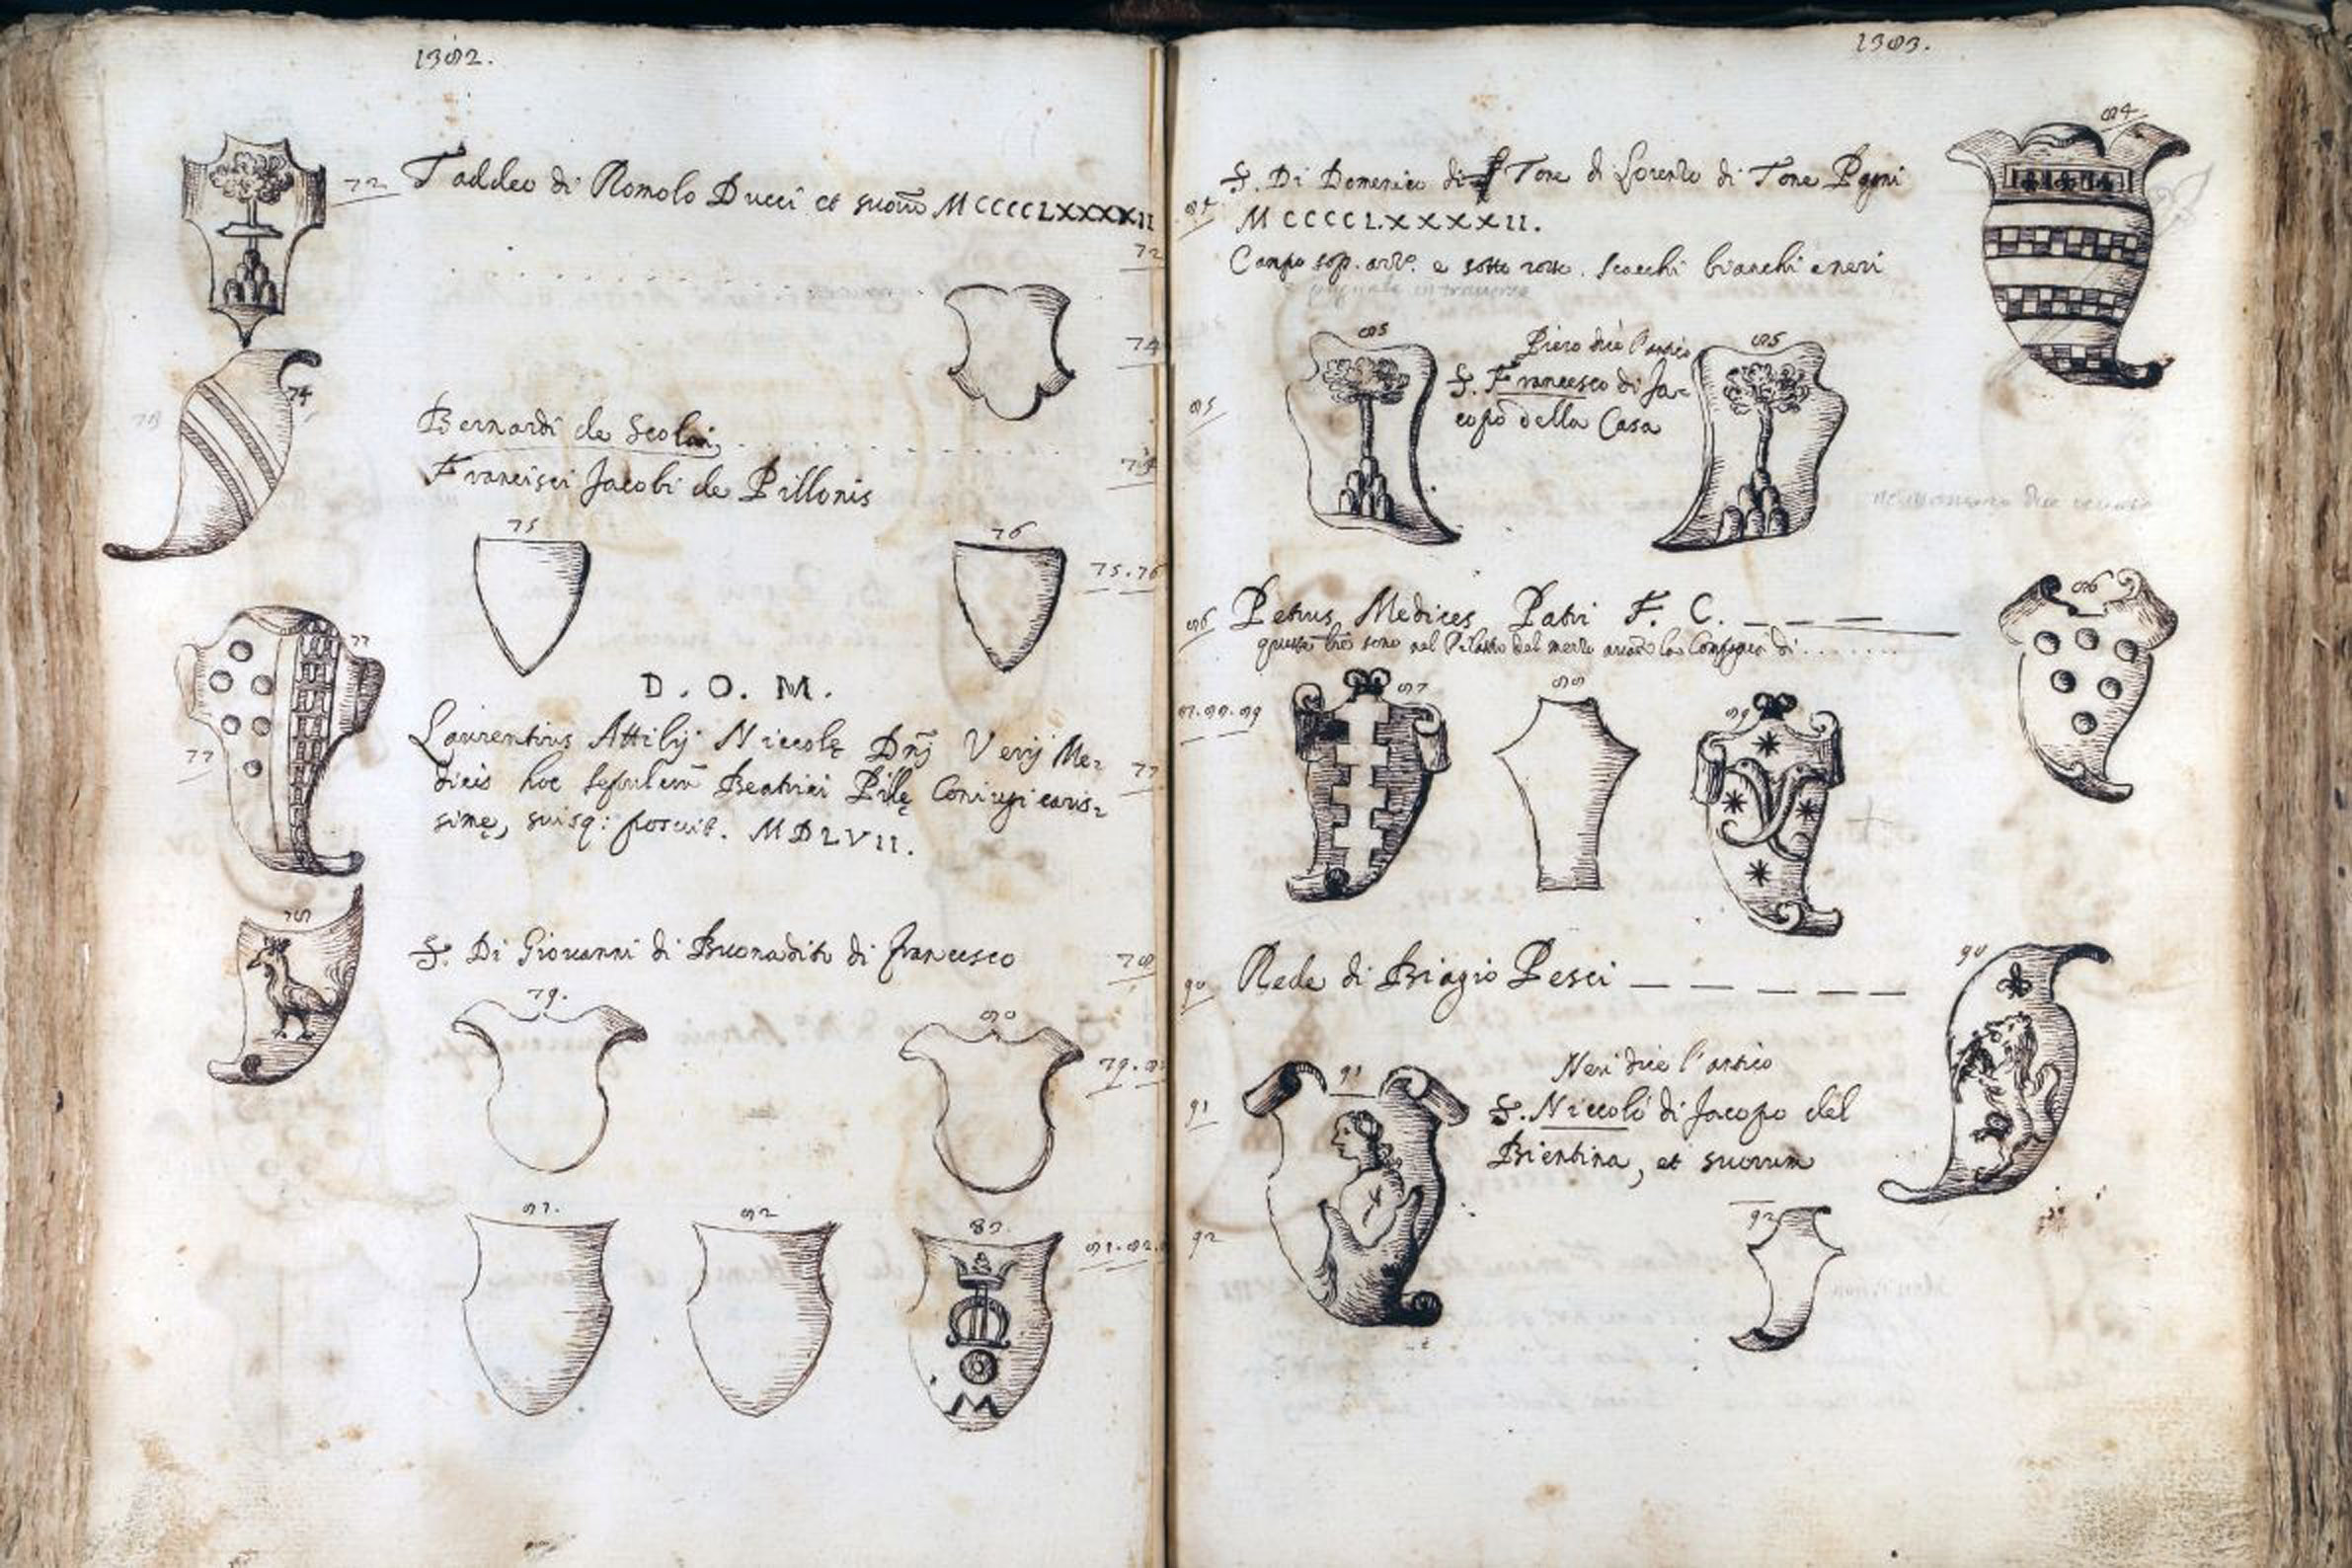 1382.
72 Taddeo di Romolo Ducci et suorū MCCCCLXXXXII
72
74
74
Bernardi de
Francisci Jacobi de Pillonis
75 76
75.76
D. O. M.
77
Laurentius Attilij Niccolę Dnj Verij Me=
77
dicis hoc sepulcrū Beatrici Pillę Coniugi caris=
77
simę, suisq: posuit. MDLVII.
78
S. Di Giovanni di Buonadito di Francesco
78
79. 80
79.
81. 82 83.
81.82.
1383.
84
S. Di Domenico di Tone di Lorenzo di Tone Pagni
84
MCCCCLXXXXII.
Campo sop. azz.º e sotto rosso. scacchi bianchi e neri
85 85
Piero dice l'antico
85 S. Francesco di Ja=
copo della Casa
86
86 Petrus Medices Patri F. C.
queste tre sono nel Pilastro del mezzo di
87 88 89
87.88.89
90
90 Rede di Biagio Pesci
91
Neri dice l'antico
91 S. Niccolò di Jacopo del
Bientina, et suorum
92
92